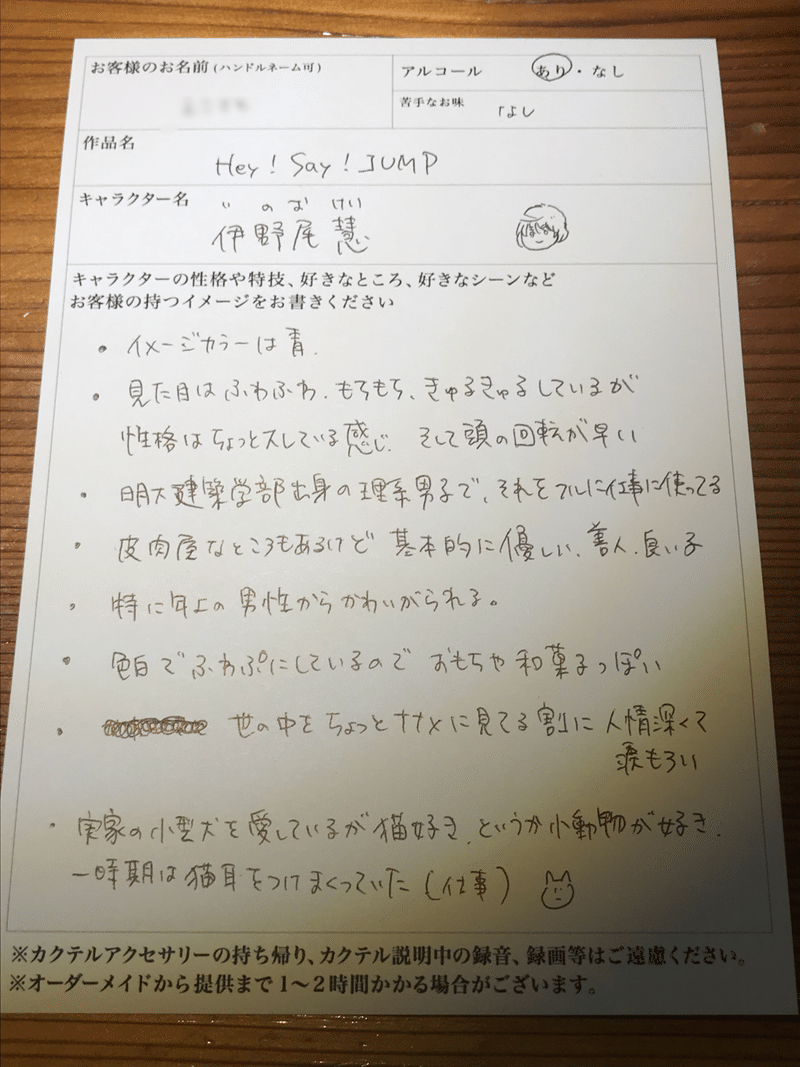 お客様のお名前(ハンドルネーム可)
アルコール あり・なし
苦手なお味 なし
作品名
Hey! Say! JUMP
キャラクター名
いのおけい
伊野尾慧
キャラクターの性格や特技、好きなところ、好きなシーンなど
お客様の持つイメージをお書きください
・イメージカラーは青.
・見た目はふわふわ.もちもち、きゅるきゅるしているが
性格はちょっとスレている感じ.そして頭の回転が早い
・明大建築学部出身の理系男子で、それをフルに仕事に使ってる
・皮肉屋なところもあるけど基本的に優しい、善人.良い子
・特に年上の男性からかわいがられる。
・色白でふわぷにしているのでおもちや和菓子っぽい
・世の中をちょっとナナメに見てる割に人情深くて
涙もろい
・実家の小型犬を愛しているが猫好き、というか小動物が好き.
一時期は猫耳をつけまくっていた(仕事)
※カクテルアクセサリーの持ち帰り、カクテル説明中の録音、録画等はご遠慮ください。
※オーダーメイドから提供まで1〜2時間かかる場合がございます。